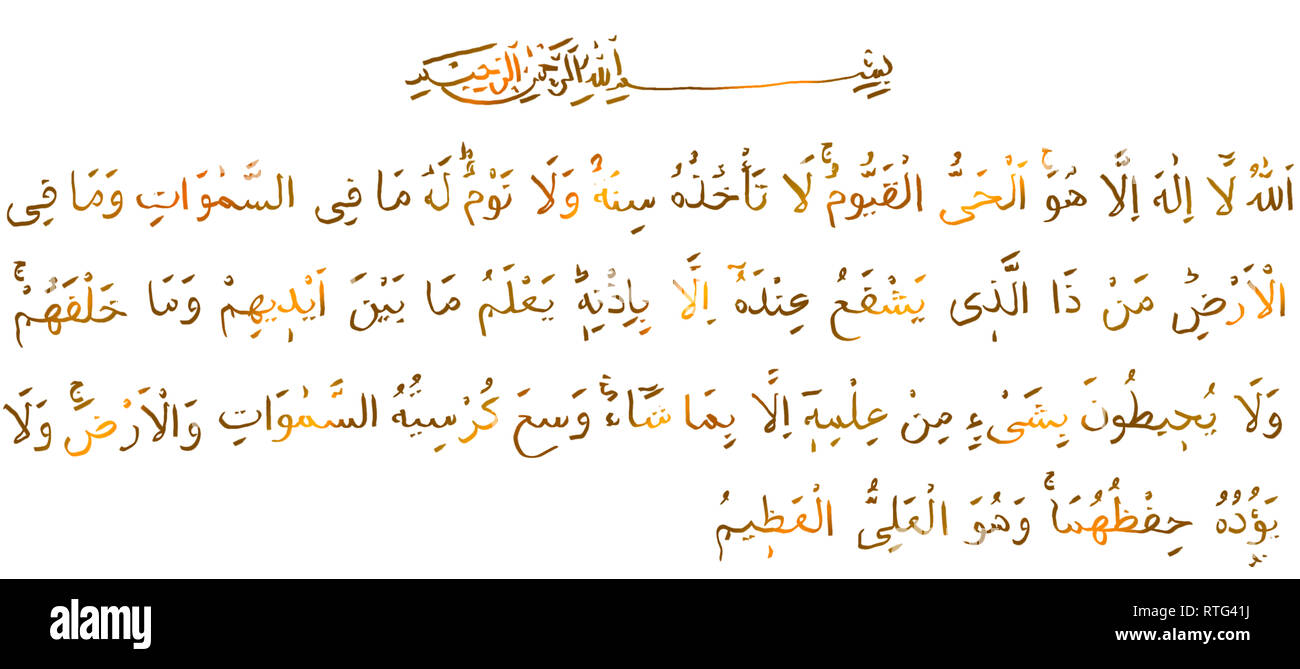 بِسْمِ اللّٰهِ الرَّحْمٰنِ الرَّحِيمِ
اَللّٰهُ لَٓا اِلٰهَ اِلَّا هُوَۚ اَلْحَيُّ الْقَيُّومُۚ لَا تَأْخُذُهُ سِنَةٌ وَلَا نَوْمٌۜ لَهُ مَا فِي السَّمٰوَاتِ وَمَا فِي
الْاَرْضِۜ مَنْ ذَا الَّذ۪ي يَشْفَعُ عِنْدَهُٓ اِلَّا بِاِذْنِه۪ۜ يَعْلَمُ مَا بَيْنَ اَيْد۪يهِمْ وَمَا خَلْفَهُمْۚ
وَلَا يُح۪يطُونَ بِشَيْءٍ مِنْ عِلْمِه۪ٓ اِلَّا بِمَا شَٓاءَۚ وَسِعَ كُرْسِيُّهُ السَّمٰوَاتِ وَالْاَرْضَۚ وَلَا
يَؤُ۫دُهُ حِفْظُهُمَاۚ وَهُوَ الْعَلِيُّ الْعَظ۪يمُ
alamy
Image ID: RTG41J
www.alamy.com